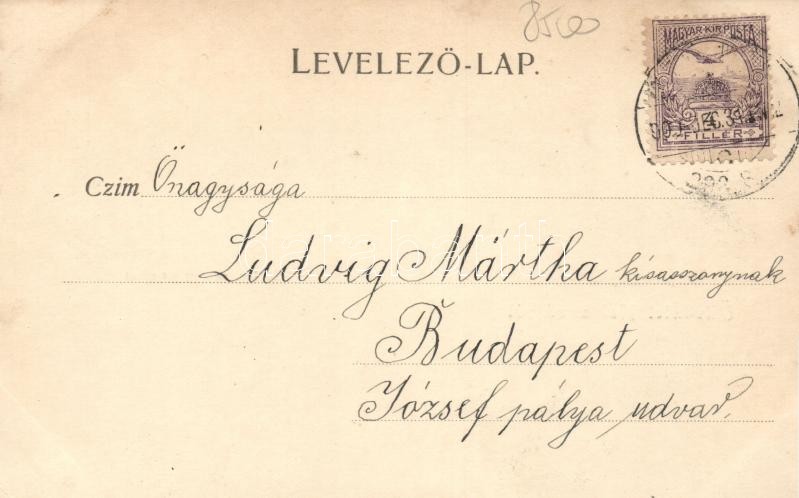 8500
LEVELEZŐ-LAP.
MAGYAR KIR. POSTA
4
FILLÉR
Czim Őnagysága
Ludvig Mártha kisasszonynak
Budapest
József pálya udvar.